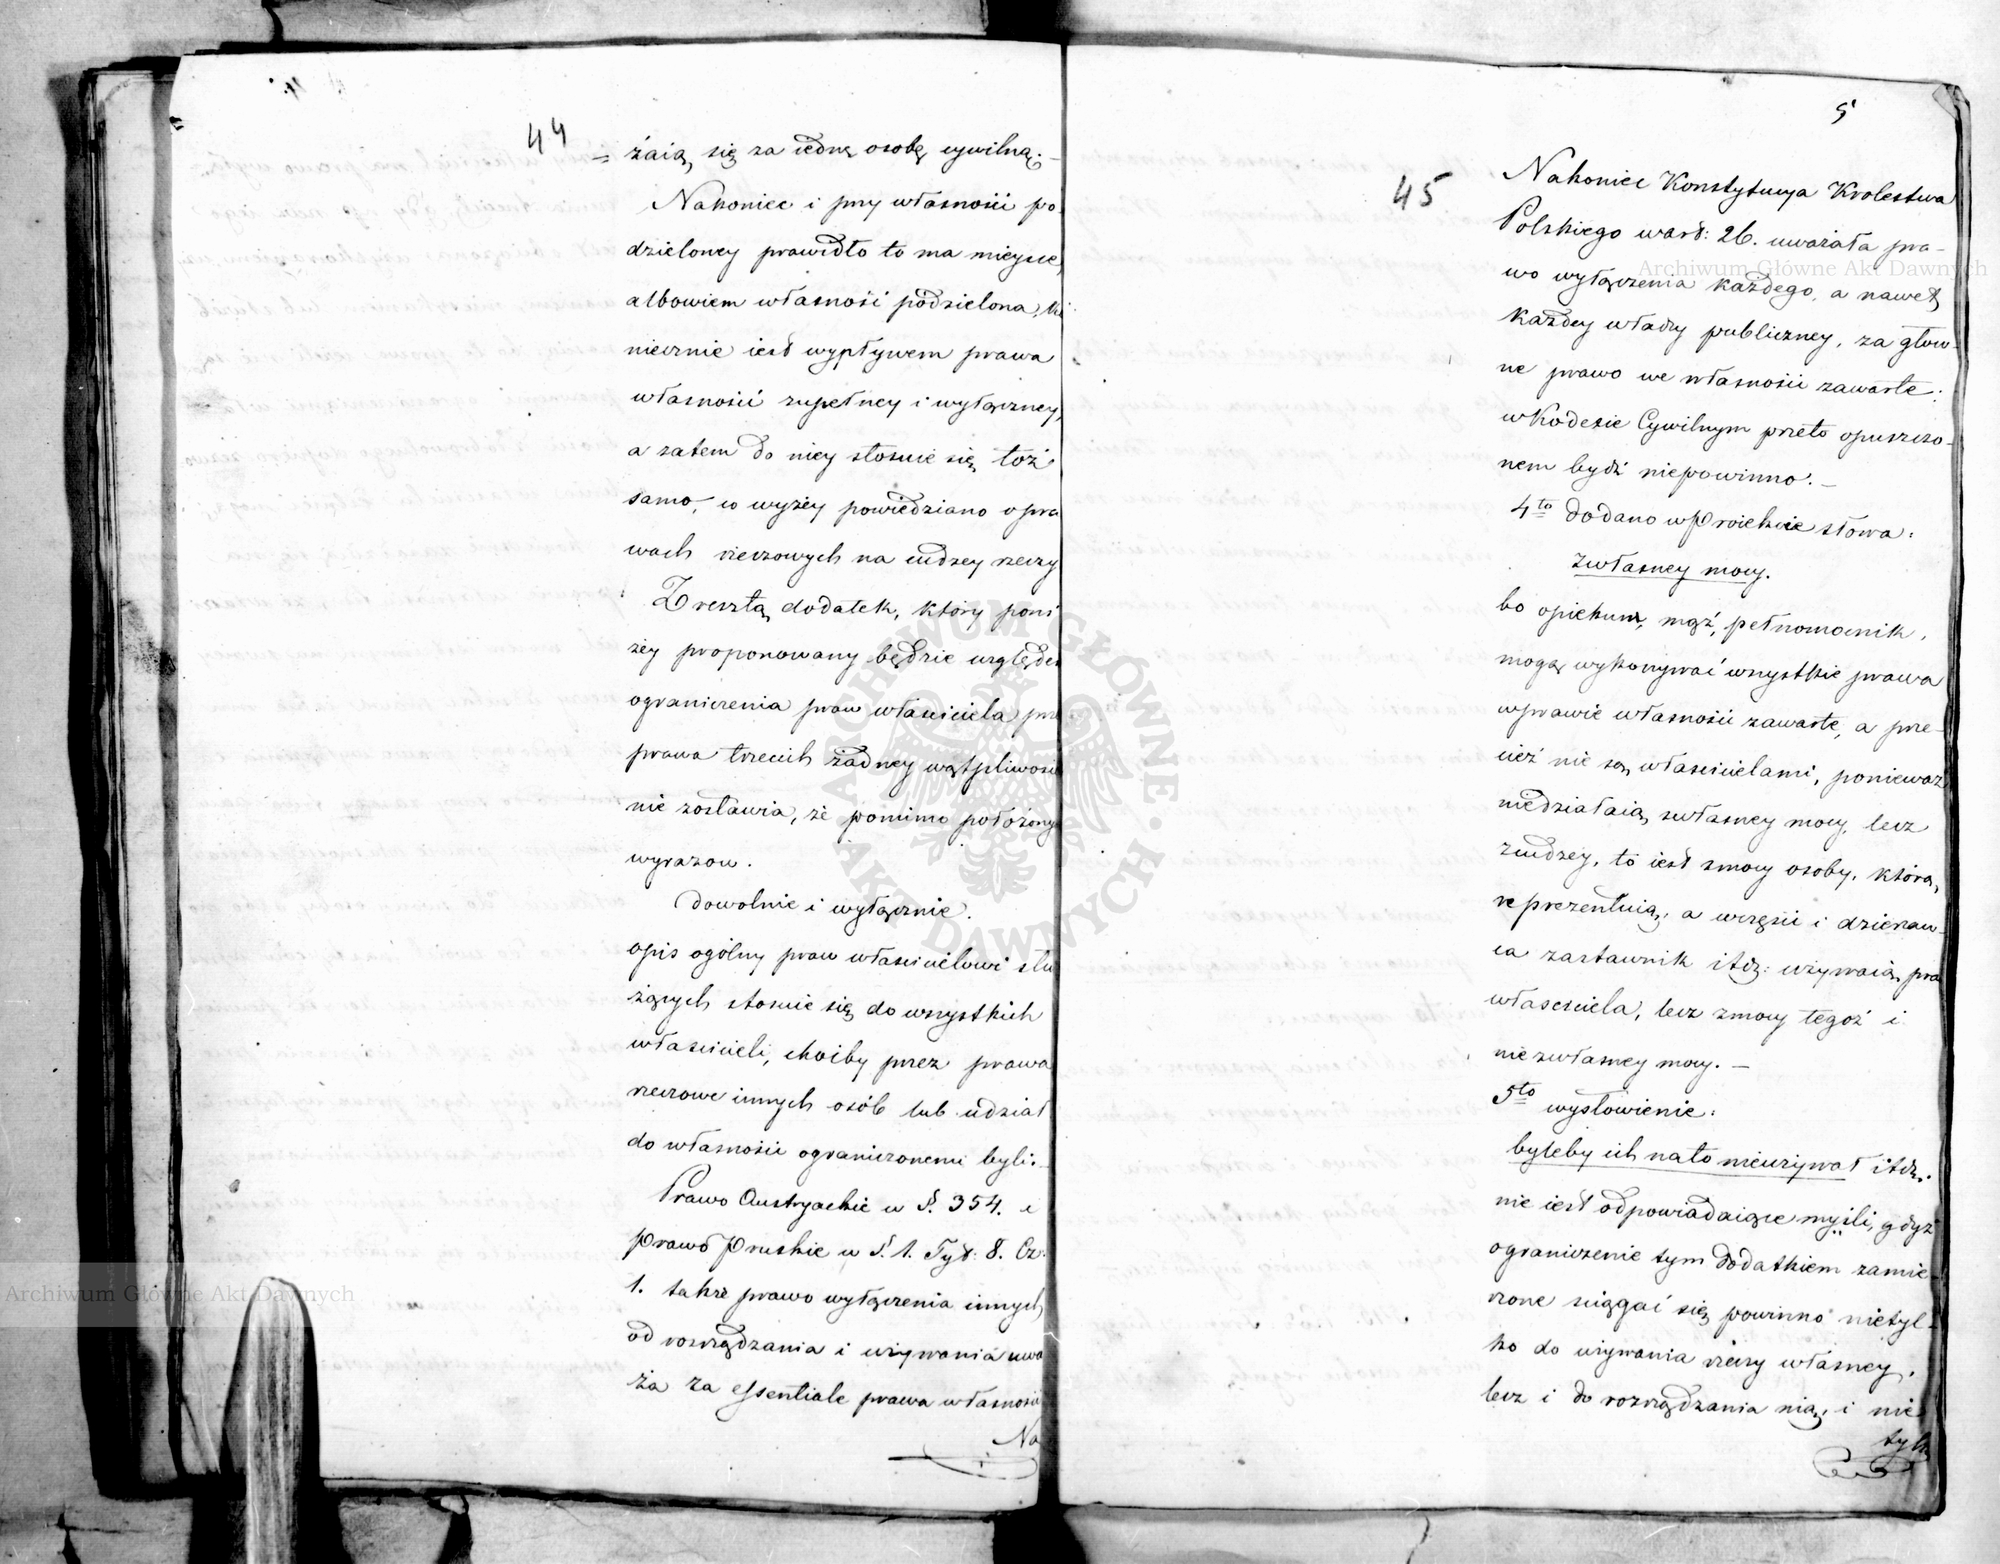 44
żaią się za iedną osobę cywilną. –
Nakoniec i przy własności po-
dzieloney prawidło to ma mieysce,
albowiem własność podzielona,
niecznie iest wypływem prawa
własności zupełney i wyłączney,
a zatem do niey stosuie się toż
samo, co wyżey powiedziano o pra
wach rzeczowych na cudzey rzeczy
Zresztą dodatek, który poni
żey proponowany będzie względem
ograniczenia praw właściciela prz
prawa trzecich żadney wątpliwości
nie zostawia, że pomimo położonych
wyrazow.
dowolnie i wyłącznie.
opis ogólny praw właścicielowi słu
żących stosuie się do wszystkich
właścicieli, choćby przez prawa
rzeczowe innych osób lub udział
do własności ograniczonemi byli. –
Prawo Austryackie w §. 354. i
prawo Pruskie w §. 1. Tyt: 8. Cz.
1. także prawo wyłączenia innych
od rozrządzania i używania uwa
ża za essentiale prawa własności
Na
5
45
Nakoniec Konstytucya Krolestwa
Polskiego w art: 26. uważała pra-
wo wyłączenia każdego, a nawet
każdey władzy publiczney, za głow-
ne prawo we własności zawarte;
w Kodexie Cywilnym przeto opuszczo-
nem bydź niepowinno. –
4to dodano w Proiekcie słowa:
z własney mocy.
bo opiekun, mąż, pełnomocnik,
mogą wykonywać wszystkie prawa
w prawie własności zawarte, a prze-
cież nie są właścicielami, ponieważ
niedziałaią z własney mocy, lecz
z cudzey, to iest z mocy osoby, którą
reprezentuią, a wczęści i dzierżaw-
ca zastawnik itd: używaią praw
właściciela, lecz z mocy tegoż i
nie z własney mocy. –
5to wysłowienie:
byleby ich na to nieużywał itd.
nie iest odpowiadaiące myśli, gdyż
ograniczenie tym dodatkiem zamie-
rzone sciągać się powinno nietyl-
ko do używania rzeczy własney,
lecz i do rozrządzania nią, i nie
tylk
Archiwum Główne Akt Dawnych
Archiwum Główne Akt Dawnych
ARCHIWUM GŁÓWNE AKT DAWNYCH